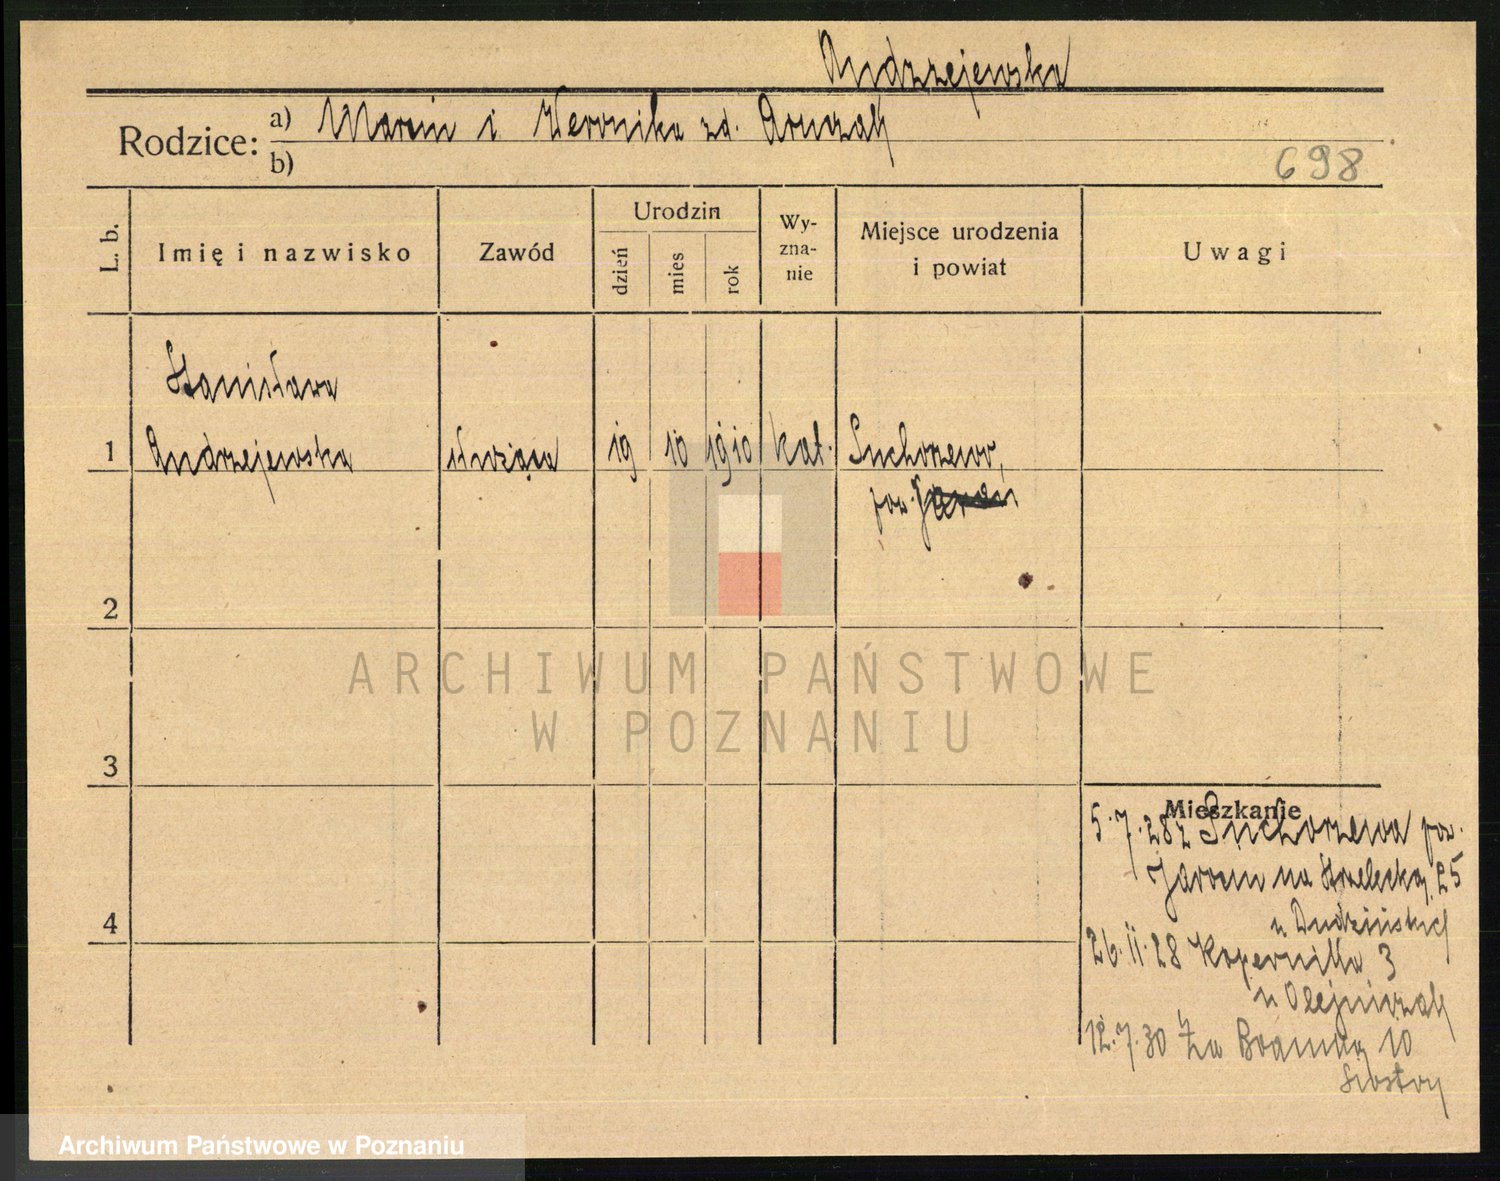 Andrzejewska
Rodzice: a) Marcin i Weronika zd.
b)
698
L. b.
Imię i nazwisko
Zawód
Urodzin
dzień
mies
rok
Wy-
zna-
nie
Miejsce urodzenia
i powiat
Uwagi
Stanisława
1 Andrzejewska służąca 19 10 1910 kat. Suchorzew,
pow. Jarocin
2
3
4
Mieszkanie
5.7.28 z Suchorzewa pow.
Jarocin na Strzelecką 25
u Dudzińskich
26.11.28 Kopernika 3
u Olejniczak
12.7.30 Za Bramką 10
siostry
ARCHIWUM PAŃSTWOWE
W POZNANIU
Archiwum Państwowe w Poznaniu